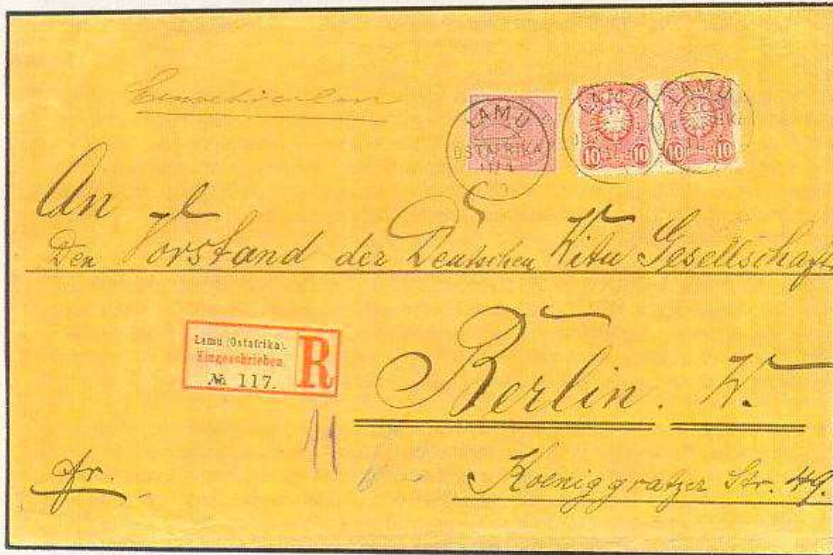 Einschreiben
LAMU
OSTAFRIKA
LAMU
LAMU
10 10
10 10
An
Den Vorstand der Deutschen Witu Gesellschaft
Lamu (Ostafrika).
Eingeschrieben.
№ 117.
R
Berlin. W.
11
fr.
Koeniggratzer Str. 49.